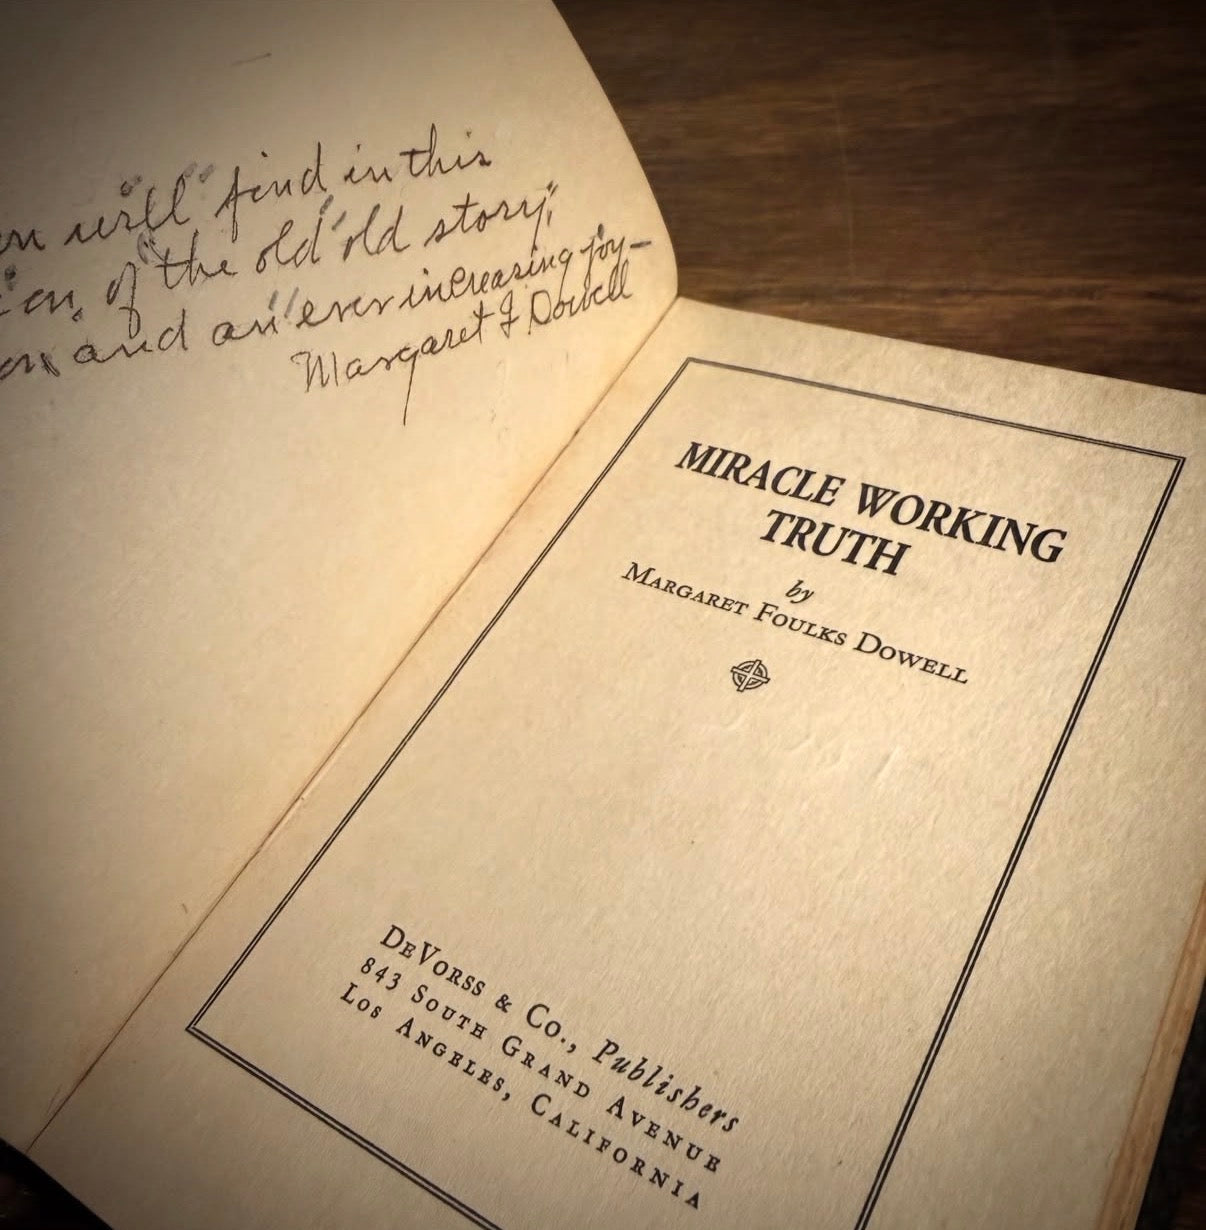 will find in this
of "the old old story,"
and an ever increasing joy—
Margaret F Dowell
MIRACLE WORKING
TRUTH
by
MARGARET FOULKS DOWELL
DEVORSS & CO., Publishers
843 SOUTH GRAND AVENUE
LOS ANGELES, CALIFORNIA